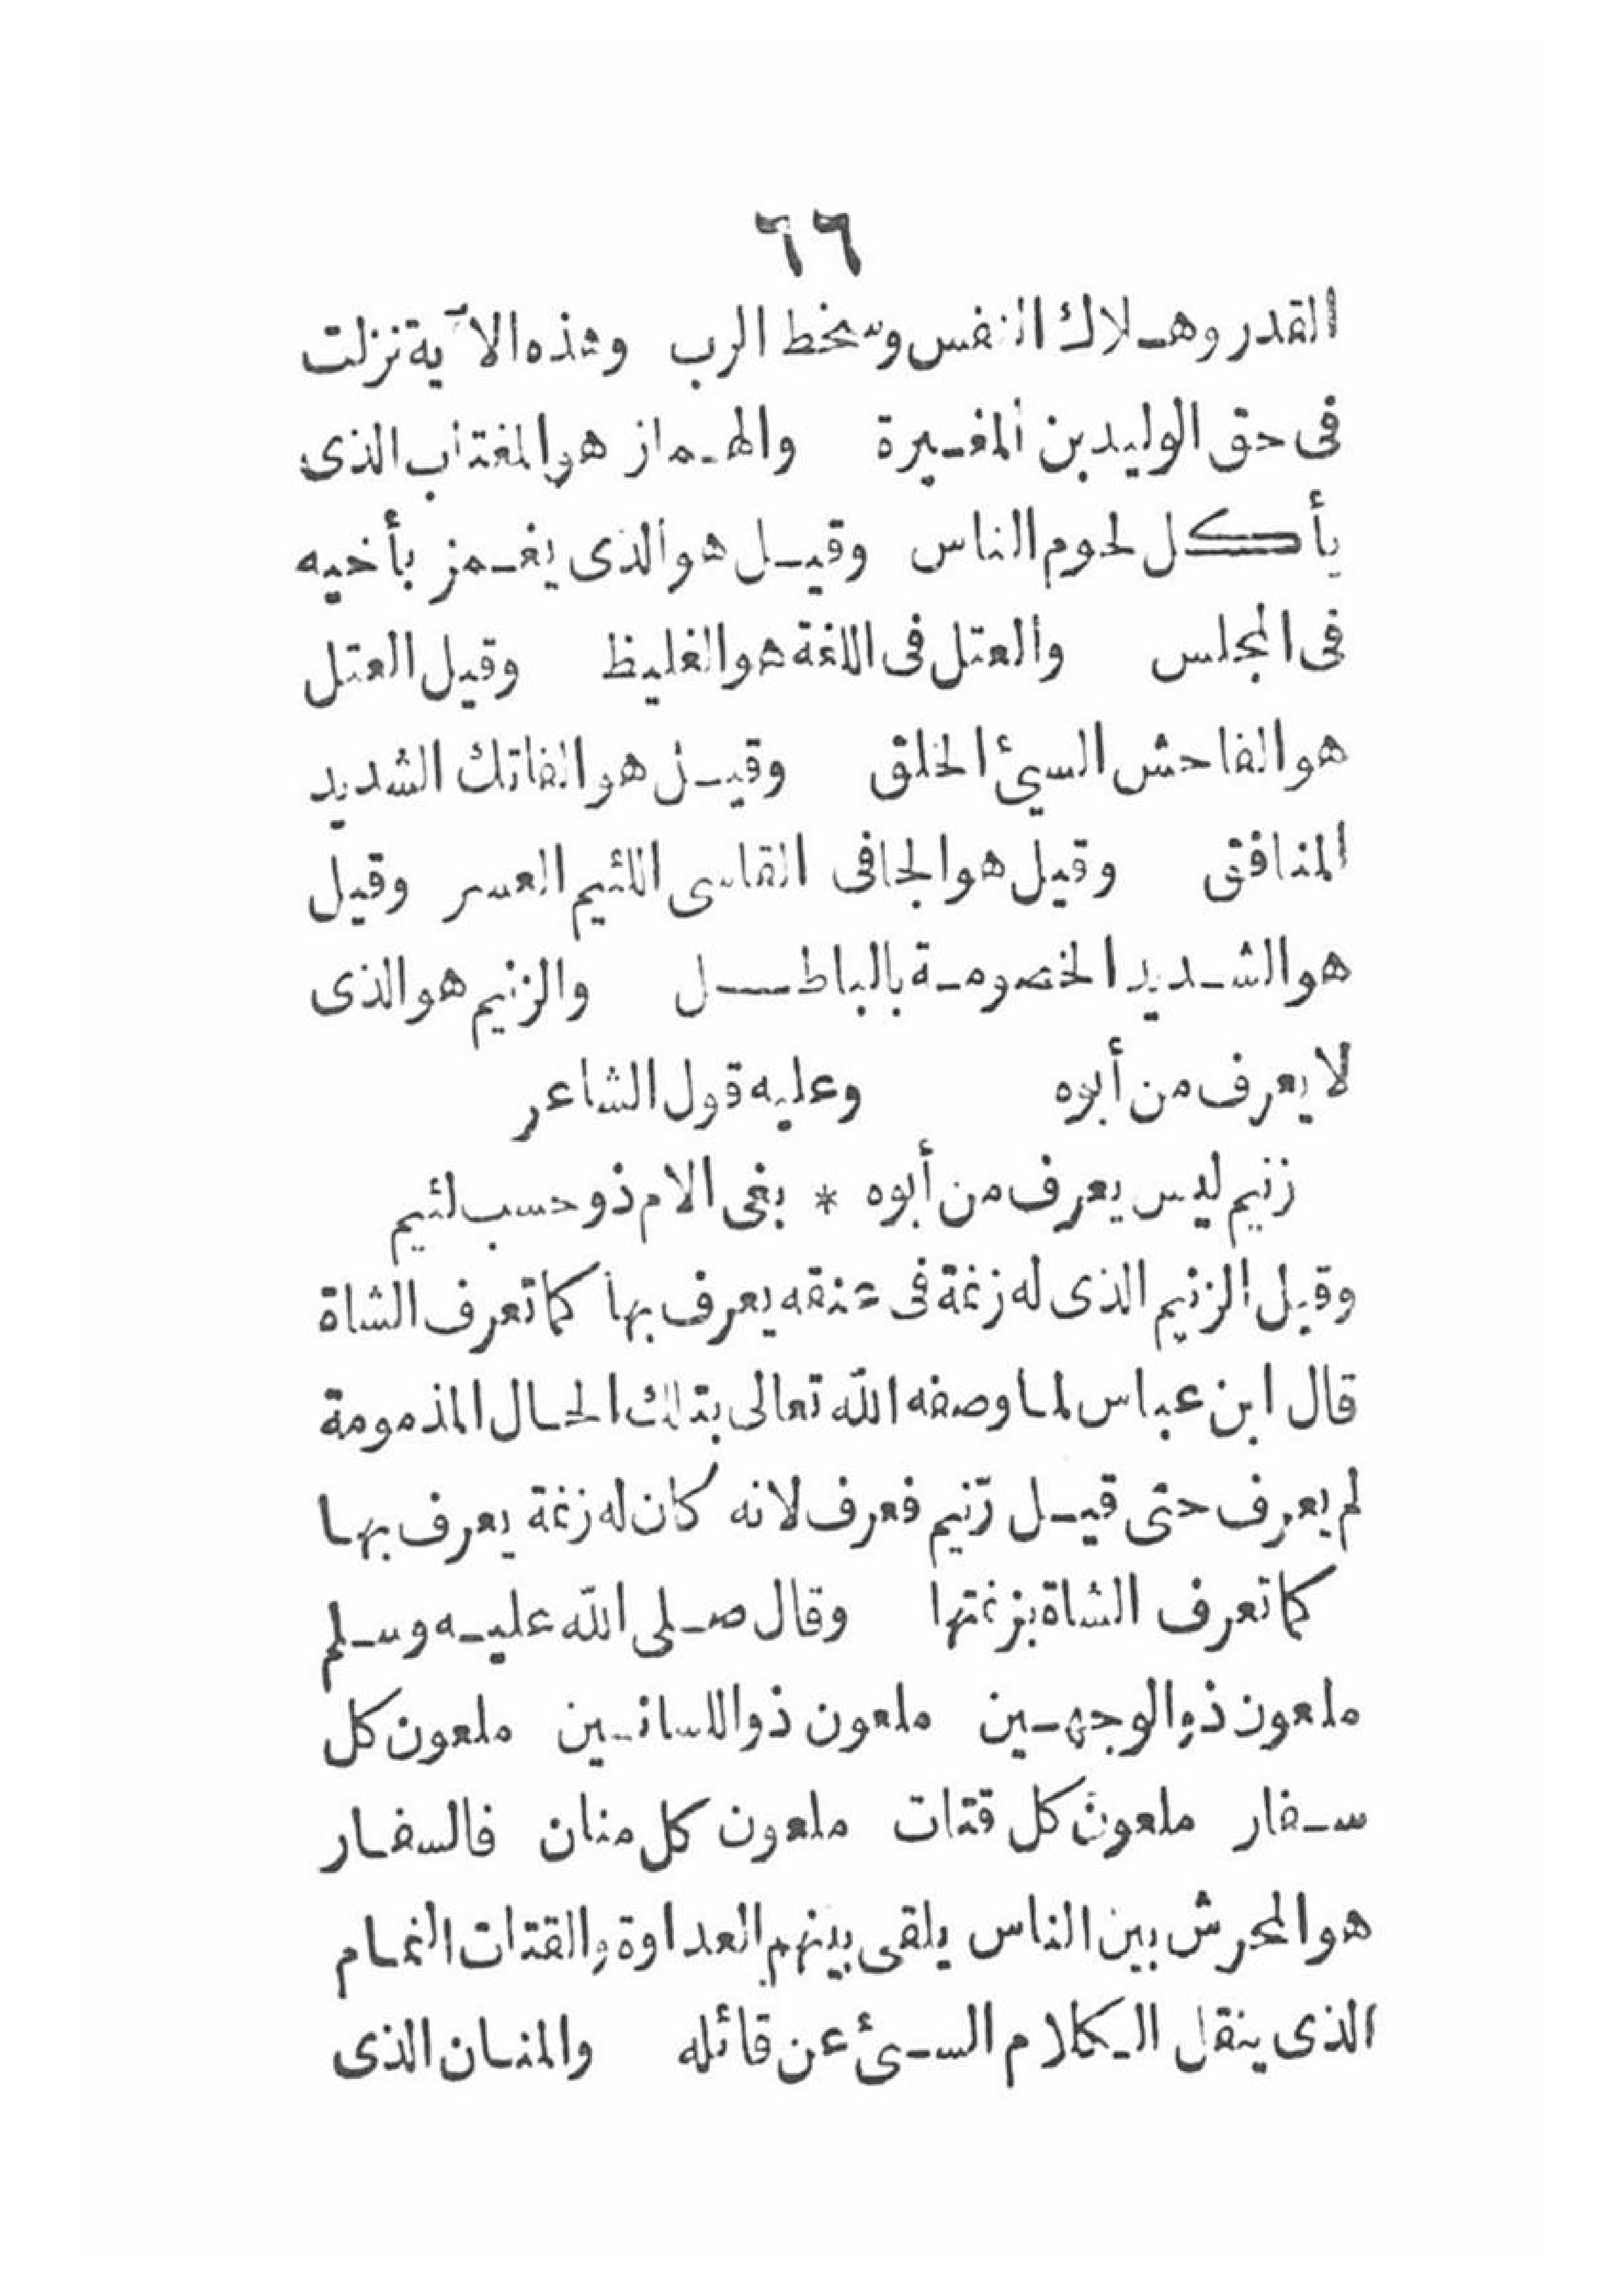 ٦٦
القدر وهلاك النفس وسخط الرب وهذه الآية نزلت
فى حق الوليد بن المغيرة والهماز هو المغتاب الذى
يأكل لحوم الناس وقيل هو الذى يغمز بأخيه
فى المجلس والعتل فى اللغة هو الغليظ وقيل العتل
هو الفاحش السيئ الخلق وقيل هو الفاتك الشديد
المنافق وقيل هو الجافى القاسى اللئيم العسر وقيل
هو الشديد الخصومة بالباطل والزنيم هو الذى
لا يعرف من أبوه وعليه قول الشاعر
زنيم ليس يعرف من أبوه * بغى الام ذو حسب لئيم
وقيل الزنيم الذى له زنمة فى عنقه يعرف بها كما تعرف الشاة
قال ابن عباس لما وصفه الله تعالى بتلك الحال المذمومة
لم يعرف حتى قيل زنيم فعرف لانه كان له زنمة يعرف بها
كما تعرف الشاة بزنمتها وقال صلى الله عليه وسلم
ملعون ذو الوجهين ملعون ذو اللسانين ملعون كل
سفار ملعون كل قتات ملعون كل منان فالسفار
هو المحرش بين الناس يلقى بينهم العداوة والقتات النمام
الذى ينقل الكلام السيئ عن قائله والمنان الذى